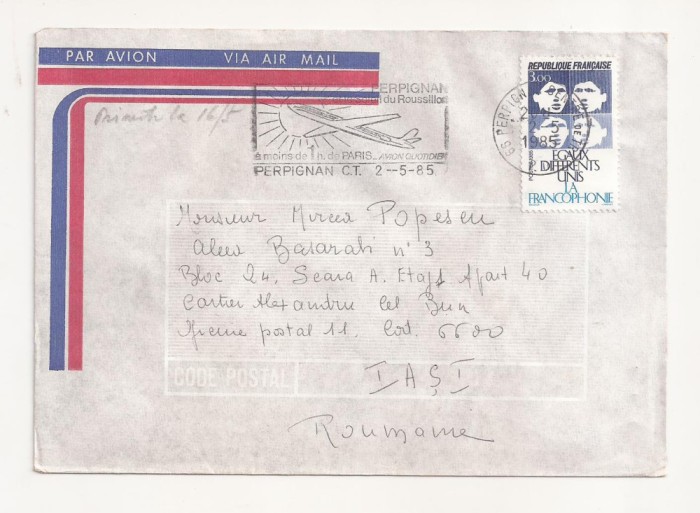 PAR AVION VIA AIR MAIL
Primită la 16/5
PERPIGNAN
du Roussillon
à moins de 1 h. de PARIS.. AVION QUOTIDIEN
PERPIGNAN C.T. 2--5-85
REPUBLIQUE FRANÇAISE
3,00
66 PERPIGNAN
1985
EGAUX
DIFFERENTS
UNIS
LA
FRANCOPHONIE
Monsieur Mircea Popescu
Aleea Basarabi n° 3
Bloc 24, Scara A. Etaj Apart 40
Cartier Alexandru cel Bun
postal 11. Cod. 6600
CODE POSTAL
IAŞI
Roumanie